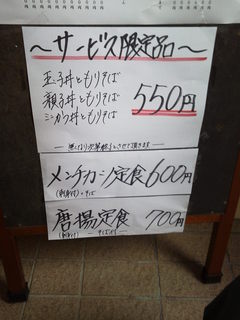 〜サービス限定品〜
玉子丼ともりそば
親子丼ともりそば
ミニカツ丼ともりそば
550円
メンチカツ定食600円
唐揚定食 700円